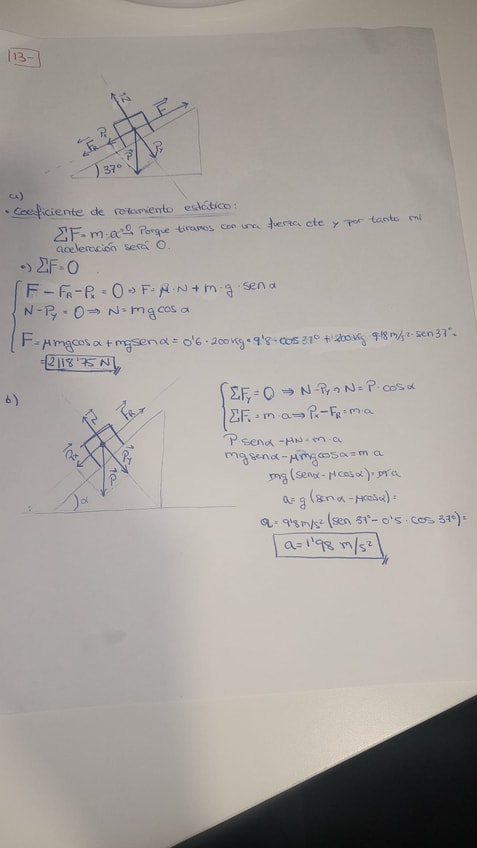 13-
N
F
Px
FR
Py
P
37º
a)
• Coeficiente de rozamiento estático:
ΣF = m·a⁰ Porque tiramos con una fuerza cte y por tanto mi
aceleración será 0.
•) ΣF = 0
F - FR - Px = 0 ⇒ F = μ·N + m·g·sen α
N - Py = 0 ⇒ N = mg cos α
F = μmg cos α + mg sen α = 0'6·200kg·9'8·cos 37º + 200kg 9'8 m/s²·sen 37º =
= 2118'75 N
b)
N
FR
Px
Py
P
α
ΣFy = 0 ⇒ N - Py ⇒ N = P·cos α
ΣFx = m·a ⇒ Px - FR = m·a
P sen α - μN = m·a
mg sen α - μmg cos α = m·a
mg (sen α - μ cos α) = m·a
a = g (sen α - μ cos α) =
a = 9'8 m/s² (sen 37º - 0'5·cos 37º) =
a = 1'98 m/s²